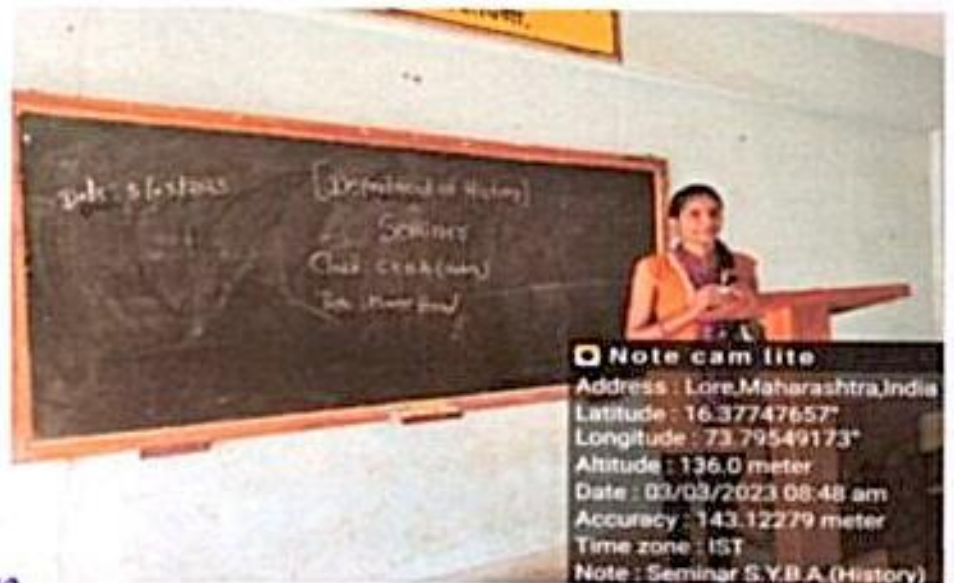 Date: 3/03/2023
[Department of History]
Seminar
Class:
Note cam lite
Address : Lore,Maharashtra,India
Latitude : 16.37747657°
Longitude : 73.79549173°
Altitude : 136.0 meter
Date : 03/03/2023 08:48 am
Accuracy : 143.12279 meter
Time zone : IST
Note : Seminar S.Y.B.A.(History)